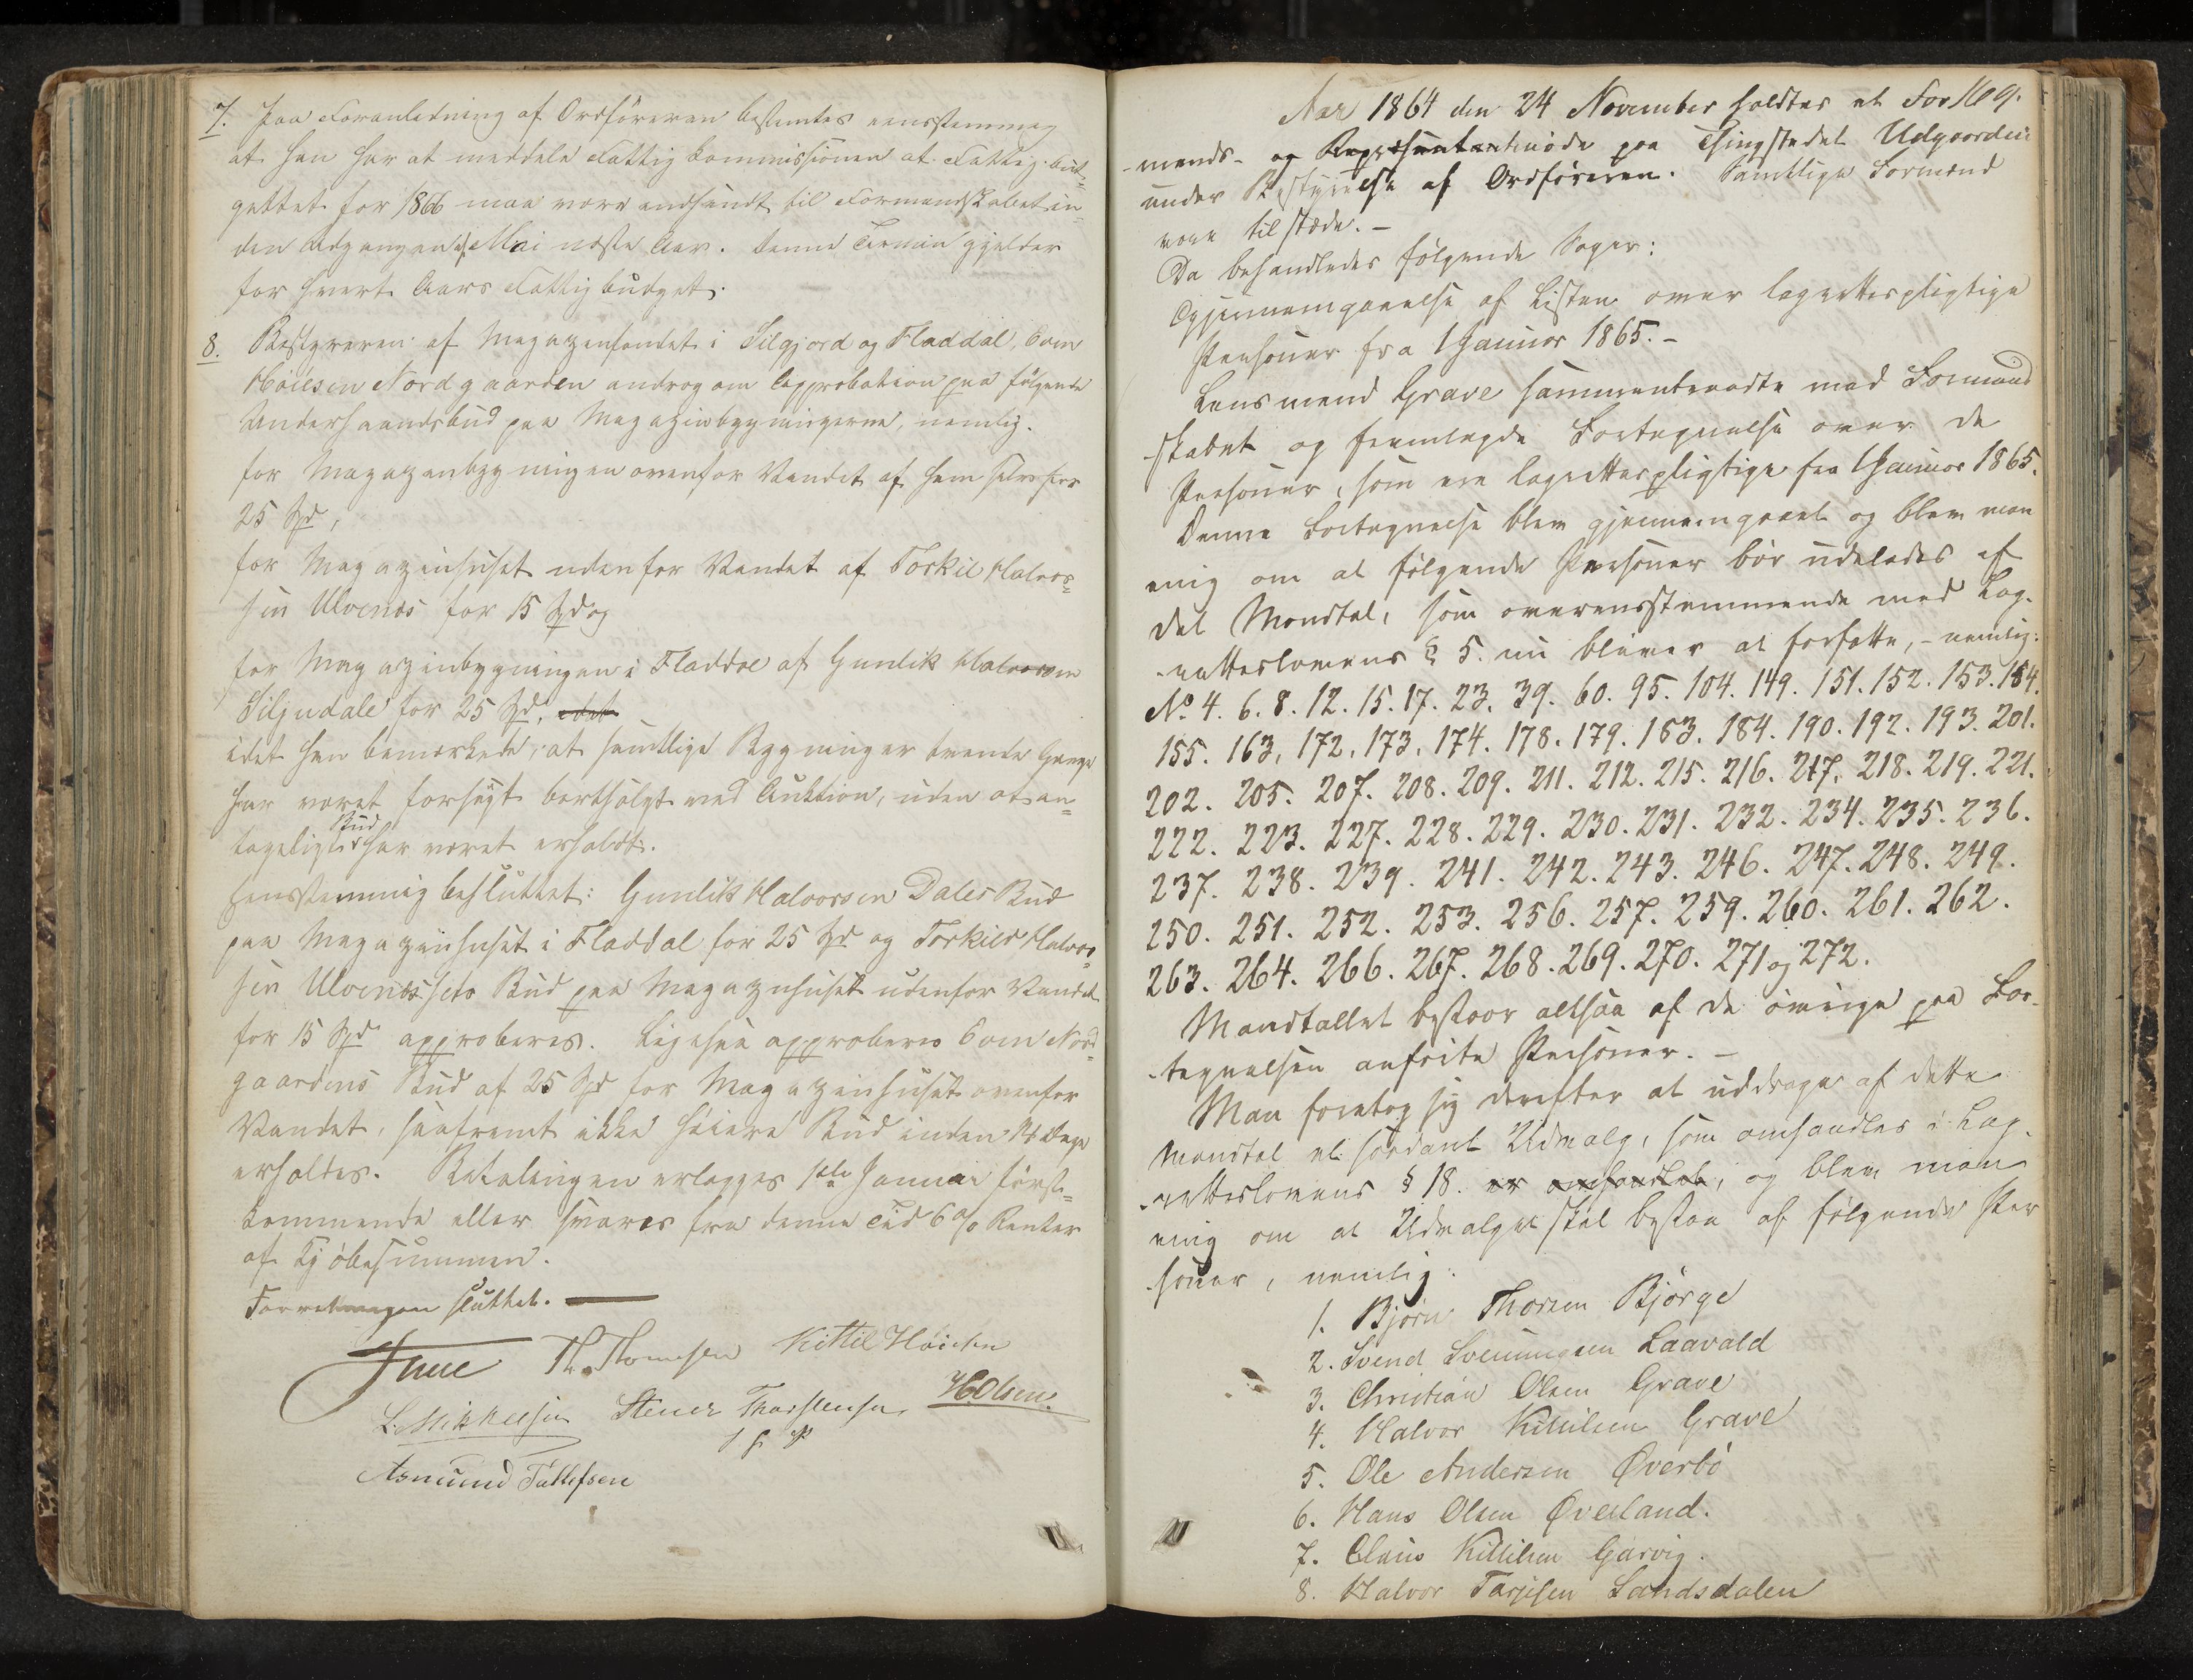 7. Paa Foranledning af Ordföreren bestemtes eenstemmig
at han har at meddele Fattigkommissionen at Fattigbud-
gettet for 1866 maa være indsendt til Formandskabet in-
den Udgangen af Mai næste Aar. Denne Termin gjelder
for hvert Aars Fattigbudget.
8. Bestyreren af Magazenfondet i Silgjord og Fladdal, Even
Höiesen Nordgaarden androg om Approbation paa fölgende
Underhaandsbud paa Magazinbygningerne, nemlig.
for Magazenbygningen ovenfor Vandet af ham selv for
25 Spd,
for Magazinhuset udenfor Vandet af Torkil Halvor-
sen Ulvenes for 15 Spd og
for Magazinbygningen i Fladdal af Gunlik Halvorsen
Siljudale for 25 Spd, idet
idet han bemærkede, at samtlige Bygninger trende Gange
har været forsögt bortsolgt ved Auktion, uden at an-
tageligt Bud har været erholdt.
Eenstemmig besluttet: Gunlik Halvorsen Dales Bud
paa Magazinhuset i Fladdal for 25 Spd og Torkild Halvor-
sen Ulvenes seto Bud paa Magazinhuset udenfor Vandet
for 15 Spd approberes. Ligesaa approberes Even Nord-
gaardens Bud af 25 Spd for Magazinhuset ovenfor
Vandet, saafremt ikke höiere Bud inden 14 Dage
erholdes. Betalingen erlægges 1ste Januar först-
kommende eller svares fra denne Tid 6 % Renter
af Kjöbesummen.
Forretningen sluttet.
Th. Thomesen Kittil Höiesen
L. Mikkelsen Stener Thorstensen H Olsen.
Asmund Tallefsen
Aar 1864 den 24 November holdtes et For
mands- og Repræsentantmöde paa Thingstedet Udgaarden
under Bestyrelse af Ordföreren. Samtlige Formænd
vare tilstæde. –
Da behandledes fölgende Sager:
Gjennemgaaelse af Listen over lagrettespligtige
Personer fra 1 Januar 1865. –
Lensmand Grave sammentraadte med Formand
skabet og fremlagde Fortegnelse over de
Personer, som ere lagrettespligtige fra 1 Januar 1865.
Denne Fortegnelse blev gjennemgaaet og blev man
enig om at fölgende Personer bör udelades af
det Mandtal, som overensstemmende med Lag-
rettelovens § 5. nu bliver at forfatte, – nemlig:
No. 4. 6. 8. 12. 15. 17. 23. 39. 60. 95. 104. 149. 151. 152. 153. 154.
155. 163. 172. 173. 174. 178. 179. 183. 184. 190. 192. 193. 201.
202. 205. 207. 208. 209. 211. 212. 215. 216. 217. 218. 219. 221.
222. 223. 227. 228. 229. 230. 231. 232. 234. 235. 236.
237. 238. 239. 241. 242. 243. 246. 247. 248. 249.
250. 251. 252. 253. 256. 257. 259. 260. 261. 262.
263. 264. 266. 267. 268. 269. 270. 271 og 272.
Mandtallet bestaar altsaa af de övrige paa For-
tegnelsen anförte Personer. –
Man foretog sig derefter at uddrage af dette
Mandtal et saadant Udvalg, som omhandles i Lag-
rettelovens § 18. er omhandlet, og blev man
enig om at Udvalget skal bestaa af fölgende Per
soner, nemlig:
1. Björn Thorsen Björge
2. Svend Sveinungsen Laavald
3. Christian Olsen Grave
4. Halvor Kittilsen Grave
5. Ole Andersen Øverbö
6. Hans Olsen Øverland.
7. Claus Kittilsen Garvig.
8. Halvor Tarjesen Landsdalen